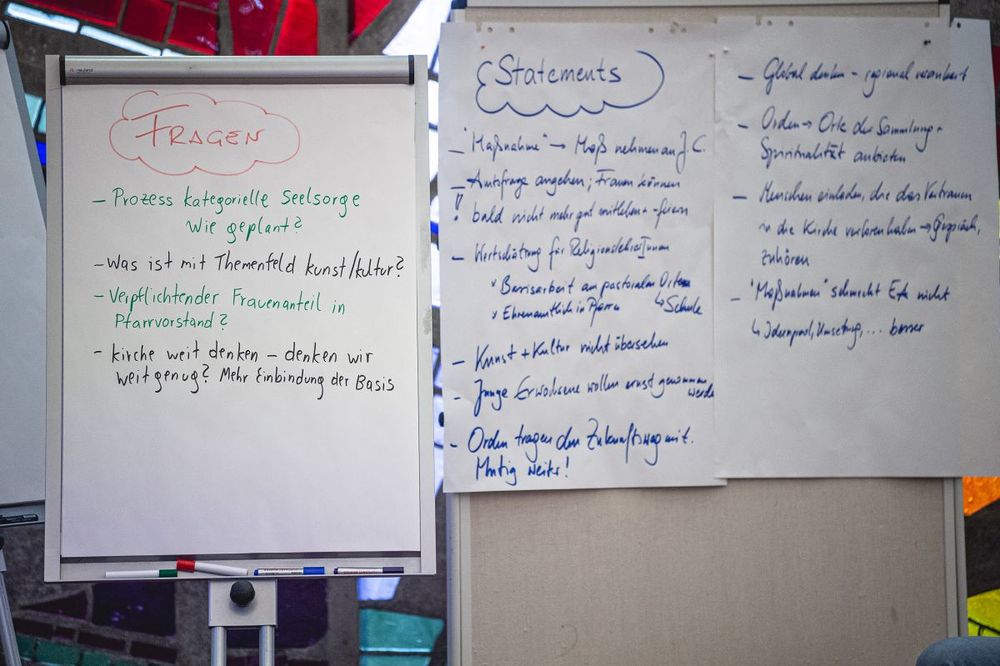 FRAGEN
– Prozess kategorielle Seelsorge
Wie geplant?
– Was ist mit Themenfeld Kunst/Kultur?
– Verpflichtender Frauenanteil in
Pfarrvorstand?
– Kirche weit denken – denken wir
weit genug? Mehr Einbindung der Basis
Statements
– "Maßnahme" → Maß nehmen an J.C.
– Amtsfrage angehen; Frauen können
! bald nicht mehr gut mitleben + -feiern
– Wertschätzung für ReligionslehrerInnen
x Basisarbeit am pastoralen Orten
↳ Schule
x Ehrenamtlich in Pfarre
– Kunst + Kultur nicht übersehen
– Junge Erwachsene wollen ernst genommen
werden
– Orden tragen den Zukunftsweg mit.
Mutig weiter!
– Global denken – regional verankert
– Orden → Orte der Sammlung +
Spiritualität anbieten
– Menschen einladen, die das Vertrauen
in die Kirche verloren haben → Gespräch,
zuhören
– "Maßnahmen" schmeckt nicht
↳ Ideenpool, Umsetzung, ... besser